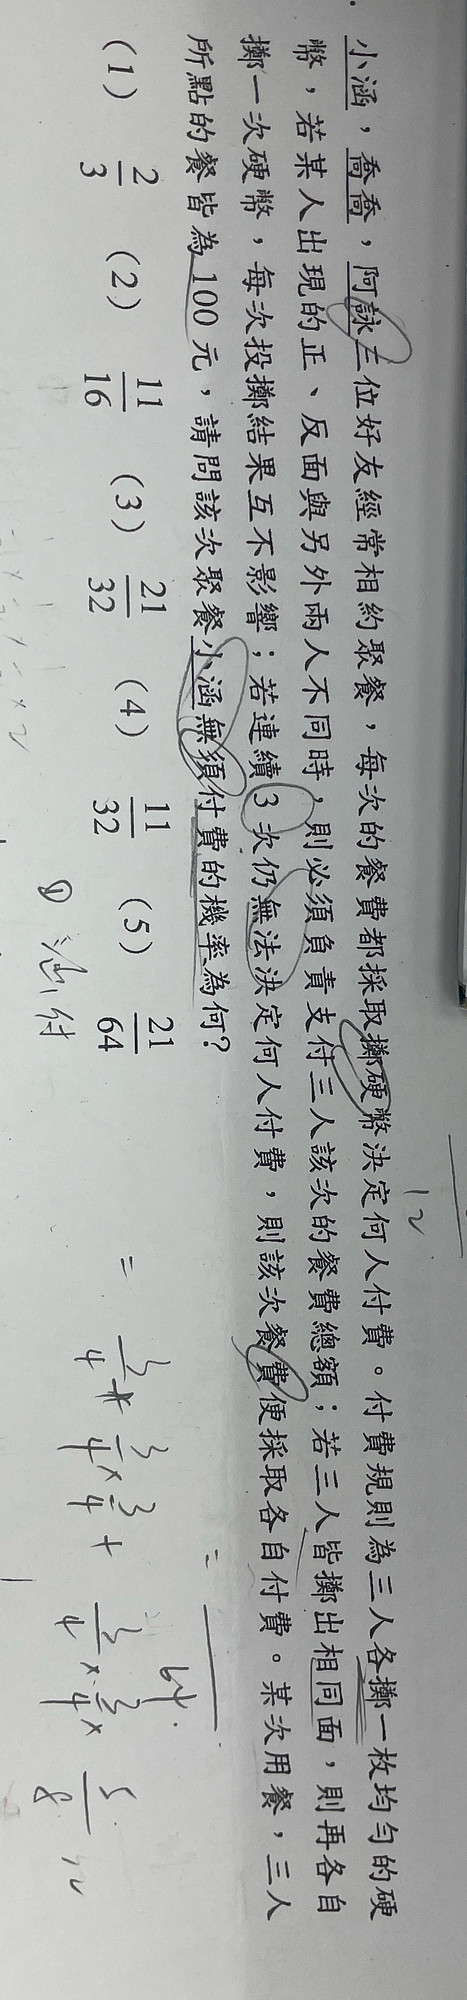 小涵，喬喬，阿詠三位好友經常相約聚餐，每次的餐費都採取擲硬幣決定何人付費。付費規則為三人各擲一枚均勻的硬
幣，若某人出現的正、反面與另外兩人不同時，則必須負責支付三人該次的餐費總額；若三人皆擲出相同面，則再各自
擲一次硬幣，每次投擲結果互不影響；若連續3次仍無法決定何人付費，則該次餐費便採取各自付費。某次用餐，三人
所點的餐皆為100元，請問該次聚餐小涵無須付費的機率為何？
(1) 2/3 (2) 11/16 (3) 21/32 (4) 11/32 (5) 21/64
12
① 涵付
= 3/4 × 3/4 × 3/4 + 3/4 × 3/4 × 5/8
= 64